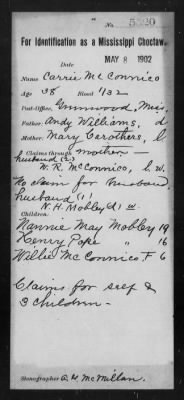 No. 5320
For Identification as a Mississippi Choctaw.
MAY 8 1902
Date
Name Carrie McConnico
Age 38 Blood 1/32
Post-Office, Greenwood, Miss.
Father, Andy Williams, d
Mother, Mary Carothers, l
Claims through mother
husband (2)
W. R. McConnico, l. w.
No claim for husband
husband (1)
N. H. Mobley d w
Children:
Nannie May Mobley 19
Henry Pope " 16
Willie McConnico F 6
Claims for self &
3 children-
Stenographer G. H. McMillan.